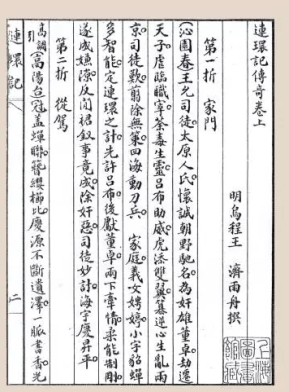 連環記傳奇卷上
明烏程王 濟雨舟撰
第一折 家門
(沁園春)王允司徒太原人氏。懷誠朝野馳名。為奸雄董卓劫遷
天子。虐臨職宰荼毒生靈。呂布助威虎添雙翼。篡逆心生亂兩
京。司徒歎。剪除無策。四海動刀兵。 家庭義女娉婷。小字貂蟬
多智能。定連環之計先許呂布後獻董卓兩下牽情。柔能制剛。
遂成嫌隙。反間招釵事竟成。除奸惡司徒妙計海宇慶昇平
第二折 從駕
高調引(高陽台)冠蓋蟬聯。簪纓櫛比。慶源不斷遺澤。一脈書香光
連環記
二